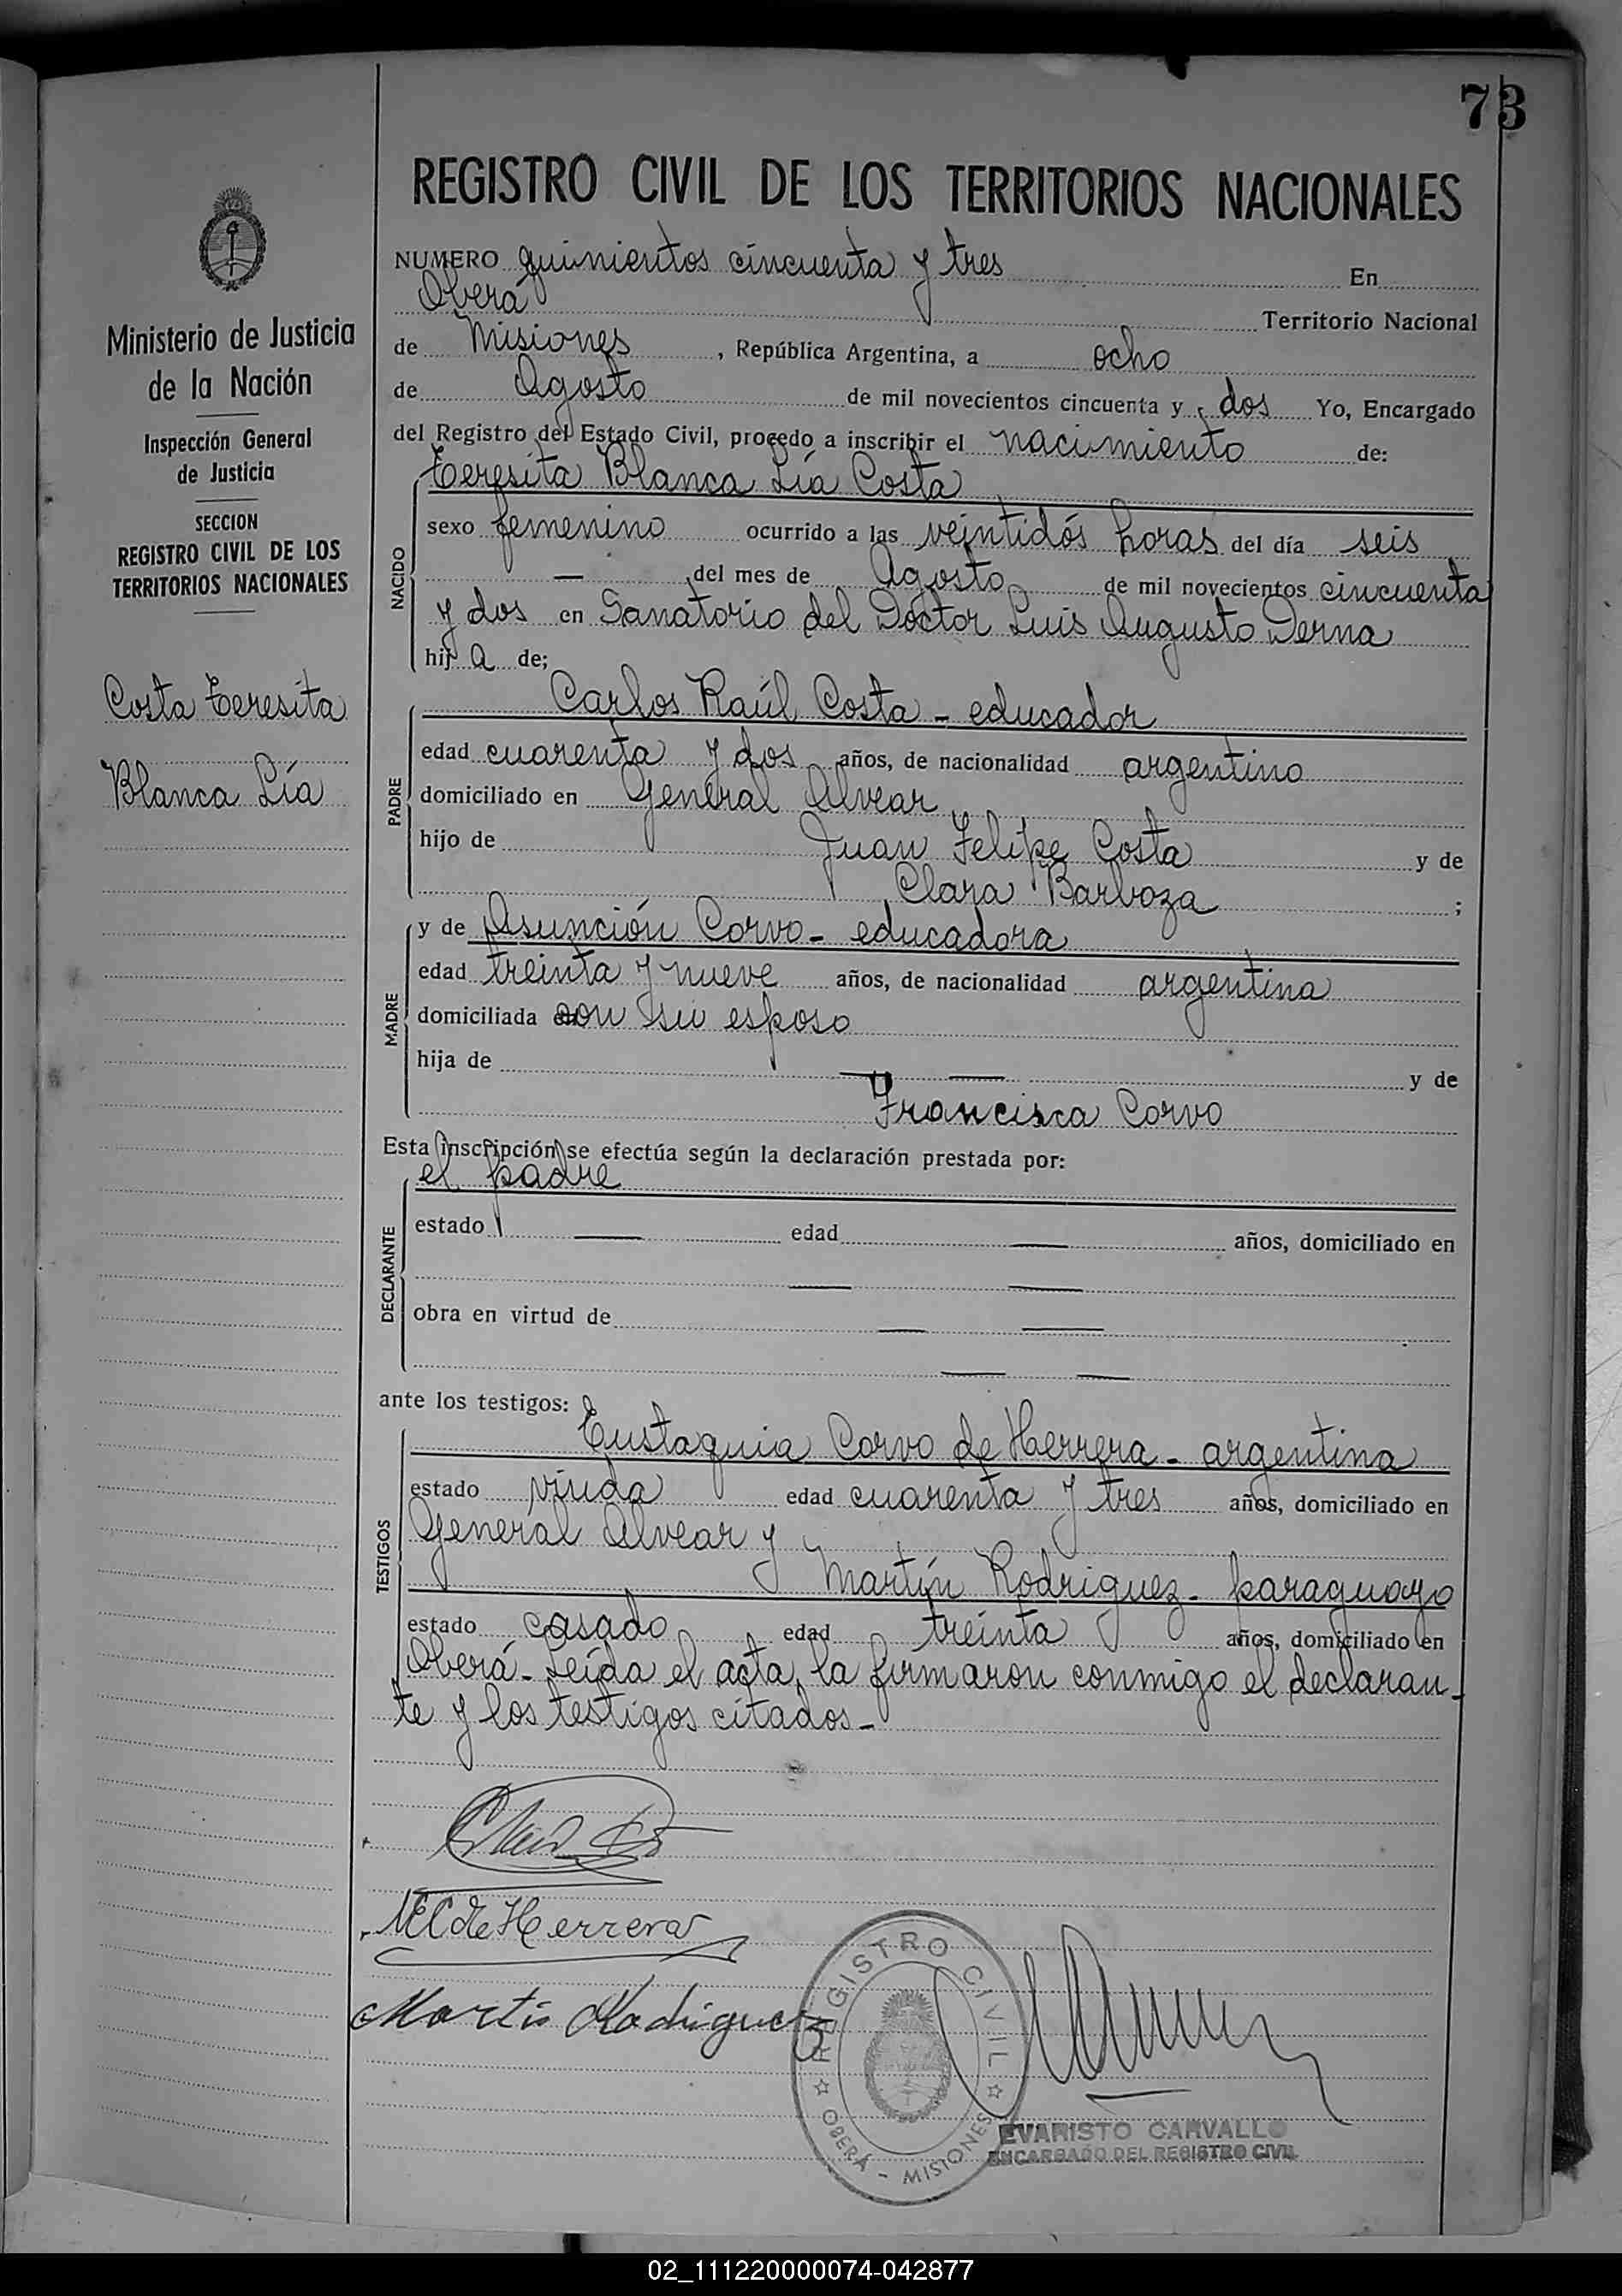 73
REGISTRO CIVIL DE LOS TERRITORIOS NACIONALES
Ministerio de Justicia
de la Nación
Inspección General
de Justicia
SECCION
REGISTRO CIVIL DE LOS
TERRITORIOS NACIONALES
Costa Teresita
Blanca Lía
NUMERO quinientos cincuenta y tres En
Oberá Territorio Nacional
de Misiones, República Argentina, a ocho
de Agosto de mil novecientos cincuenta y dos Yo, Encargado
del Registro del Estado Civil, procedo a inscribir el nacimiento de:
NACIDO
Teresita Blanca Lía Costa
sexo femenino ocurrido a las veintidós horas del día seis
— del mes de Agosto de mil novecientos cincuenta
y dos en Sanatorio del Doctor Luis Augusto Derna
hij a de;
PADRE
Carlos Raúl Costa - educador
edad cuarenta y dos años, de nacionalidad argentino
domiciliado en General Alvear
hijo de Juan Felipe Costa y de
Clara Barboza ;
MADRE
y de Asunción Corvo - educadora
edad treinta y nueve años, de nacionalidad argentina
domiciliada con su esposo
hija de — — y de
Francisca Corvo
Esta inscripción se efectúa según la declaración prestada por:
DECLARANTE
el padre
estado — edad — años, domiciliado en
— —
obra en virtud de — —
— —
ante los testigos:
TESTIGOS
Eustaquia Corvo de Herrera - argentina
estado viuda edad cuarenta y tres años, domiciliado en
General Alvear y
Martín Rodriguez - paraguayo
estado casado edad treinta años, domiciliado en
Oberá - Leída el acta, la firmaron conmigo el declaran-
te y los testigos citados -
de Herrera
Martin Rodriguez
REGISTRO CIVIL
OBERÁ - MISIONES
EVARISTO CARVALLO
ENCARGADO DEL REGISTRO CIVIL
02_111220000074-042877